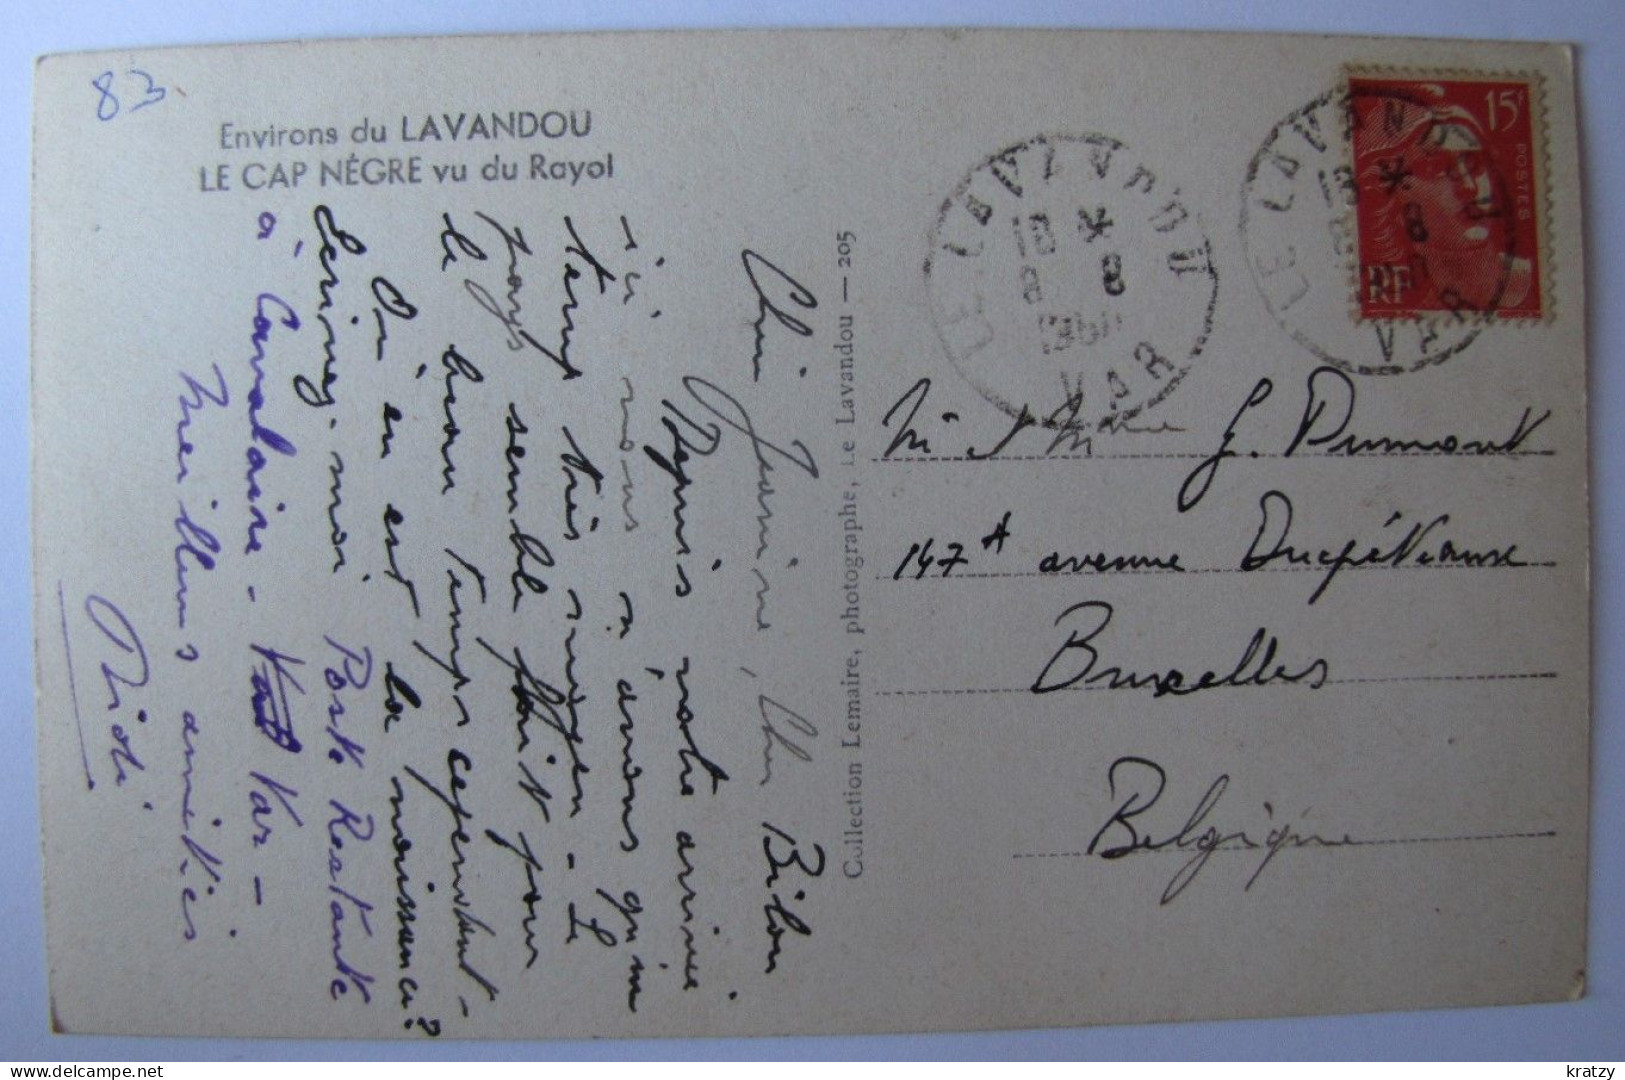 83
Environs du LAVANDOU
LE CAP NÉGRE vu du Rayol
Chère Janine, Cher Bilou
Depuis notre arrivée
ici nous n'avons qu'un
temps très moyen - Le
pays semble fait pour
le beau temps cependant -
Où en est la naissance?
Écrivez-moi Poste Restante
à Cavalaire - Var -
Meilleures amitiés
Didi
Collection Lemaire, photographe, Le Lavandou — 205
LE LAVANDOU
18
* 8
VAR
LE LAVANDOU
18
* 8
VAR
15F
POSTES
RF
M & Mme G. Dumont
147A avenue Ducpétiaux
Bruxelles
Belgique
kratzy